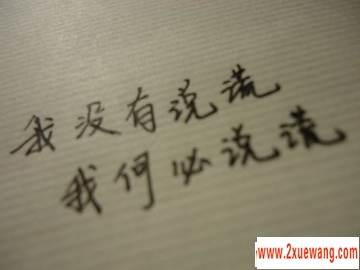 我没有说谎
我何必说谎
www.2xuewang.com